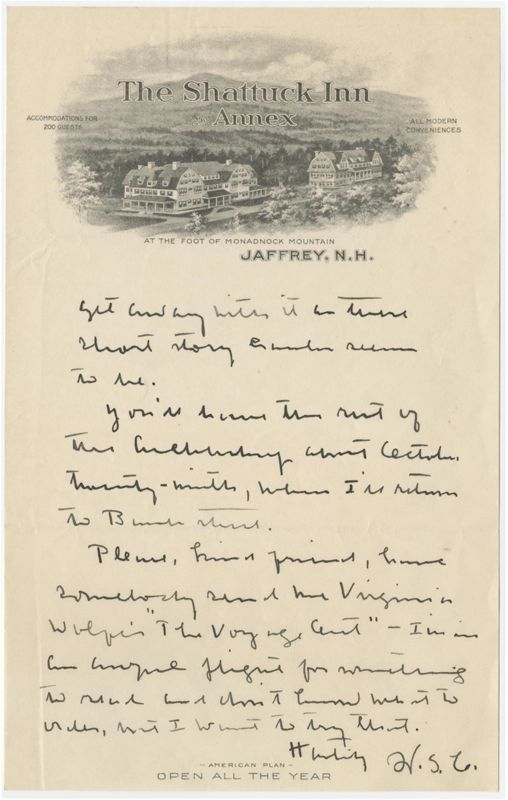 The Shattuck Inn
and Annex
ACCOMMODATIONS FOR
200 GUESTS
ALL MODERN
CONVENIENCES
AT THE FOOT OF MONADNOCK MOUNTAIN
JAFFREY, N.H.
get away with it as these
short story seem
to be.
You'll have the rest of
the about October
twenty-ninth, when I'll return
to Bank street.
Please, kind friend, have
somebody send me Virginia
Wolfe's "The Voyage Out" – I'm in
an awful plight for something
to read and don't know what to
order, but I want to try that.
Hastily W.S.C.
- AMERICAN PLAN -
OPEN ALL THE YEAR